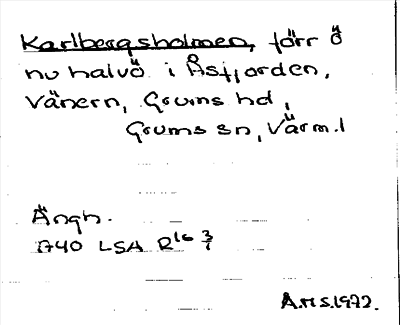 Karlbergsholmen, förr ö
nu halvö i Åsfjorden,
Vänern, Grums hd,
Grums sn, Värm.l
Ängh.
1740 LSA R16 3/1
Å.H S. 1972.